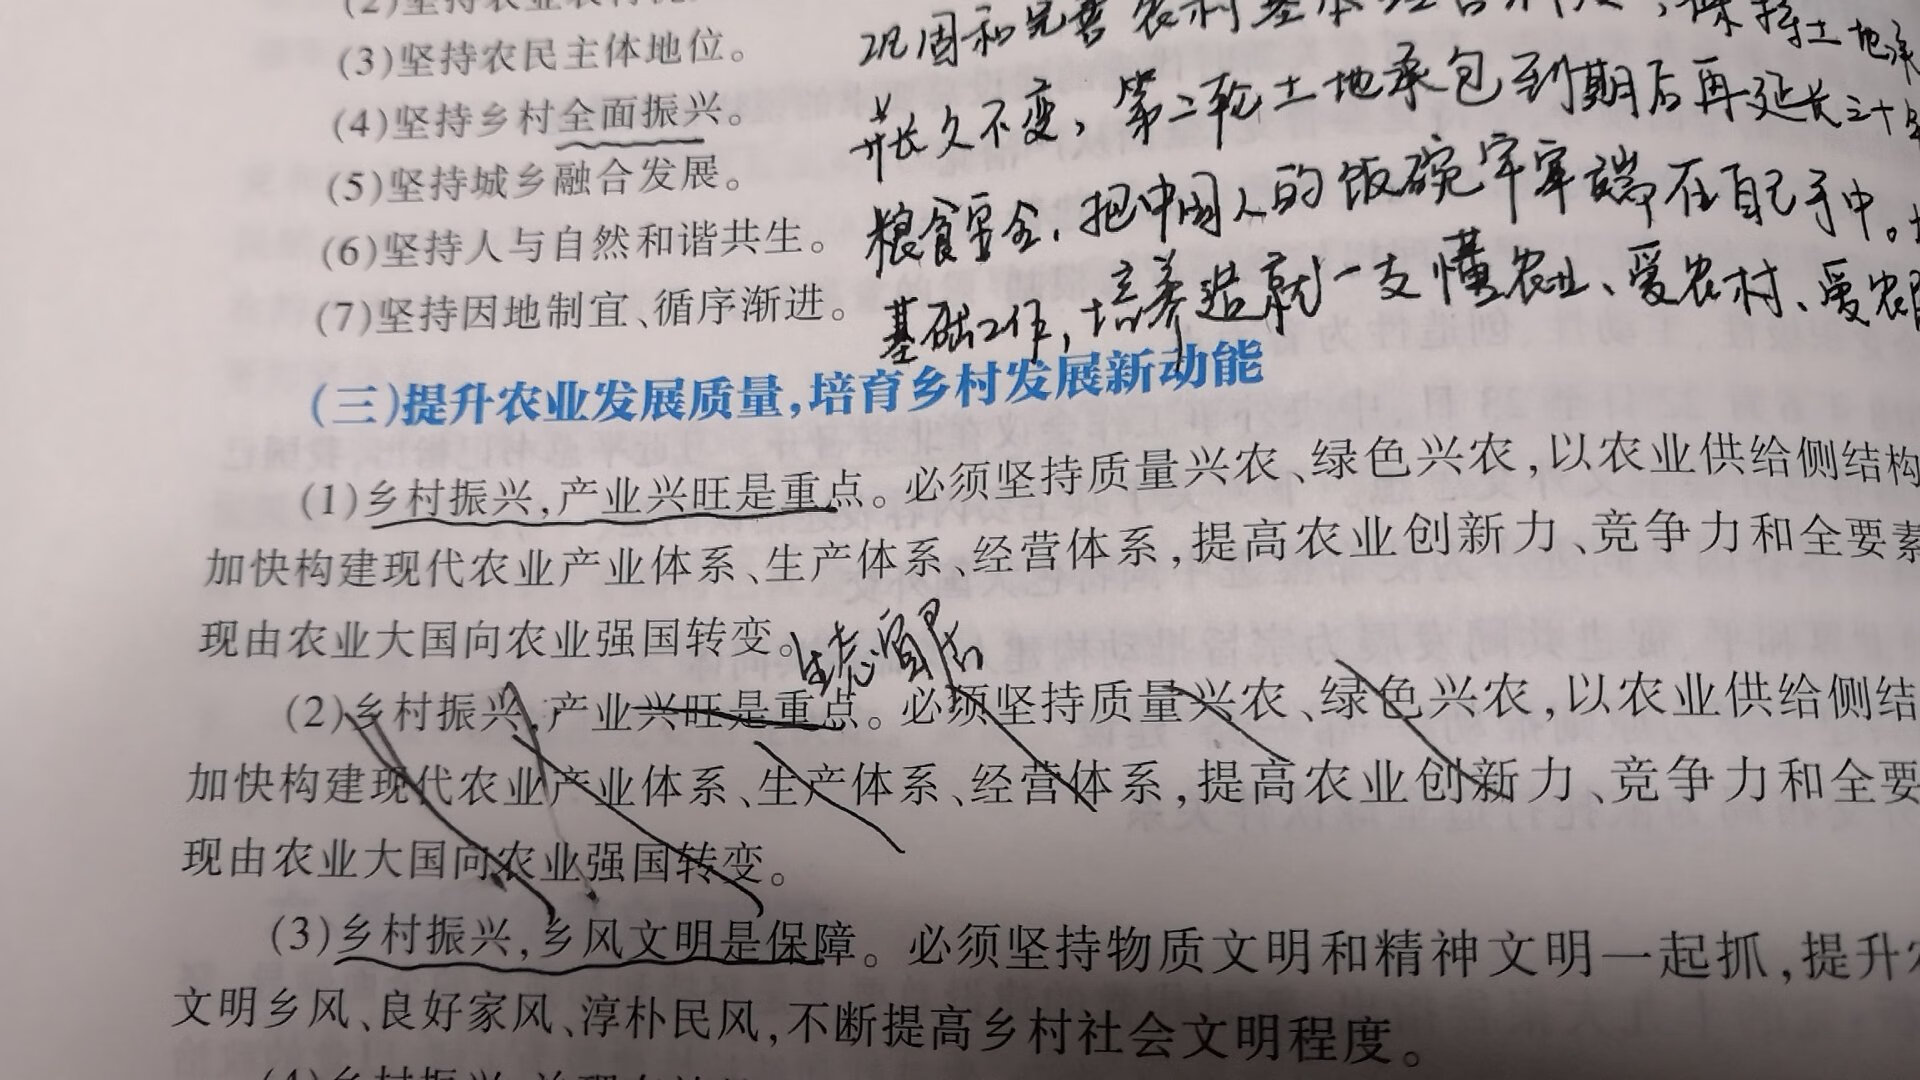 (3)坚持农民主体地位。
(4)坚持乡村全面振兴。
(5)坚持城乡融合发展。
(6)坚持人与自然和谐共生。
(7)坚持因地制宜、循序渐进。
巩固和完善农村基本经营制度,保持土地承
长久不变,第二轮土地承包到期后再延长三十年
粮食安全,把中国人的饭碗牢牢端在自己手中。
基础工作,培养造就一支懂农业、爱农村、爱农民
(三)提升农业发展质量,培育乡村发展新动能
(1)乡村振兴,产业兴旺是重点。必须坚持质量兴农、绿色兴农,以农业供给侧结构
加快构建现代农业产业体系、生产体系、经营体系,提高农业创新力、竞争力和全要素
现由农业大国向农业强国转变。
生态宜居
(2)乡村振兴,产业兴旺是重点。必须坚持质量兴农、绿色兴农,以农业供给侧结
加快构建现代农业产业体系、生产体系、经营体系,提高农业创新力、竞争力和全要
现由农业大国向农业强国转变。
(3)乡村振兴,乡风文明是保障。必须坚持物质文明和精神文明一起抓,提升农
文明乡风、良好家风、淳朴民风,不断提高乡村社会文明程度。